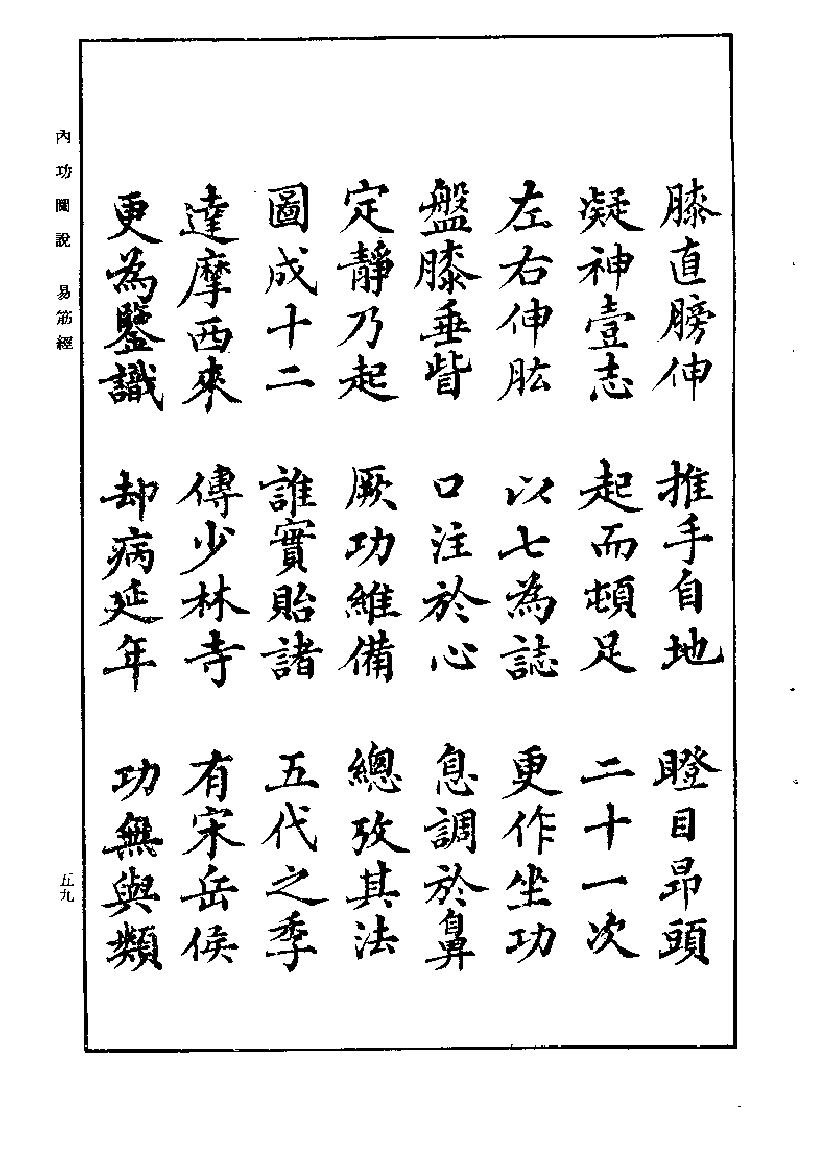 膝直膀伸　推手自地　瞪目昂頭
凝神壹志　起而頓足　二十一次
左右伸肱　以七為誌　更作坐功
盤膝垂眥　口注於心　息調於鼻
定靜乃起　厥功維備　總攷其法
圖成十二　誰實貽諸　五代之季
達摩西來　傳少林寺　有宋岳侯
更為鑒識　却病延年　功無與類
內功圖說　易筋經
五九